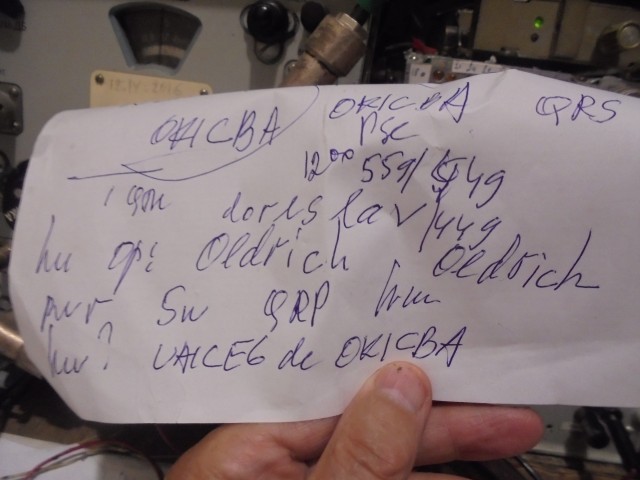 OK1CBA OK1CBA QRS
pse
12⁰⁰ 559/549
QTH doris lav/449
hu op: Oldrich Oldrich
pwr 5w QRP hw
hw? UA1CEG de OK1CBA